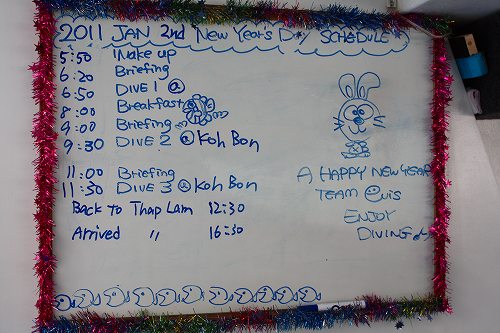 2011 JAN 2nd New Year's Day SCHEDULE
5:50 Wake up
6:20 Briefing
6:50 DIVE 1 @
8:00 Breakfast
9:00 Briefing
9:30 DIVE 2 @ Koh Bon
11:00 Briefing
11:30 DIVE 3 @ Koh Bon
Back to Thap Lam 12:30
Arrived 〃 16:30
A HAPPY NEW YEAR
TEAM
ENJOY
DIVING♪